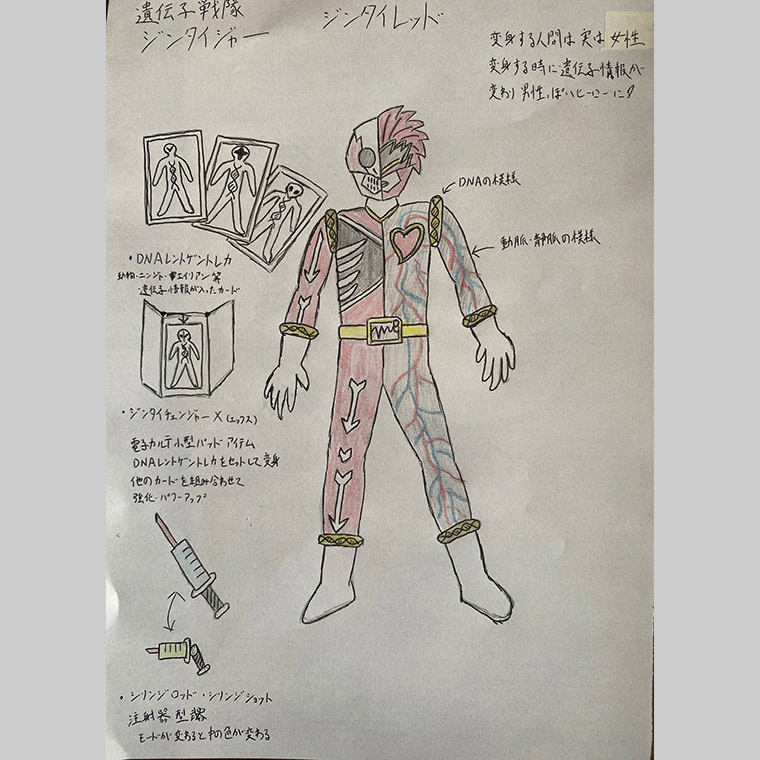 遺伝子戦隊
ジンタイジャー
ジンタイレッド
変身する人間は実は女性
変身する時に遺伝子情報が
変わり男性っぽいヒーローに!
DNAの模様
動脈・静脈の模様
・DNAレントゲントレカ
動物・ニンジャ・エイリアン等
遺伝子情報が入ったカード
・ジンタイチェンジャーX(エックス)
電子カルテ小型パッドアイテム
DNAレントゲントレカをセットして変身
他のカードを組み合わせて
強化・パワーアップ
・シリンジロッド・シリンジショット
注射器型
モードが変わると色が変わる